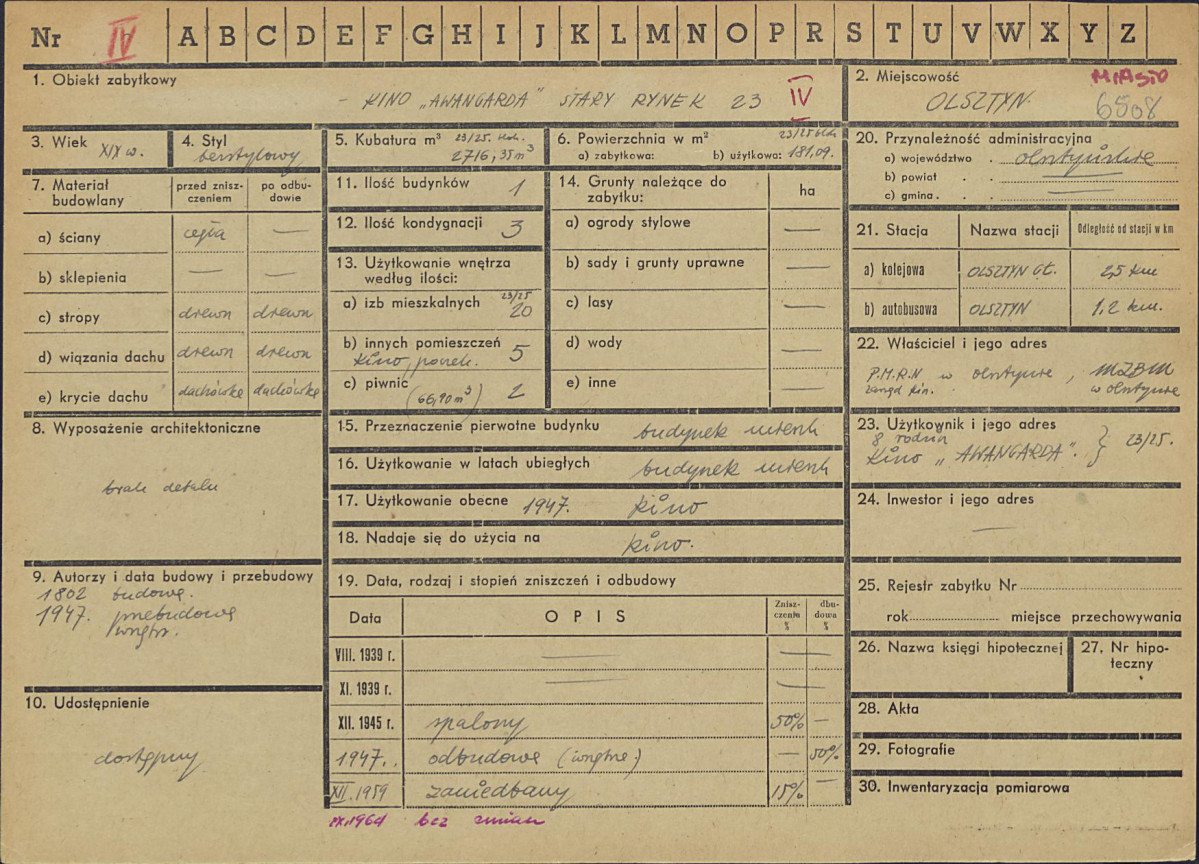 Nr IV A B C D E F G H I J K L M N O P R S T U V W X Y Z
1. Obiekt zabytkowy
- KINO „AWANGARDA" STARY RYNEK 23 IV
2. Miejscowość MIASTO
OLSZTYN. 6508
3. Wiek XIX w.
4. Styl
bezstylowy
5. Kubatura m³ 23/25.
2716,35 m³
6. Powierzchnia w m² 23/25
a) zabytkowa: b) użytkowa: 181,09.
7. Materiał budowlany
przed znisz-
czeniem
po odbu-
dowie
a) ściany cegła —
b) sklepienia — —
c) stropy drewn drewn
d) wiązania dachu drewn drewn
e) krycie dachu dachówka dachówka
8. Wyposażenie architektoniczne
brak detalu
9. Autorzy i data budowy i przebudowy
1802 budowa.
1947. przebudowa
wnętrz.
10. Udostępnienie
dostępny
11. Ilość budynków 1
12. Ilość kondygnacji 3
13. Użytkowanie wnętrza
według ilości:
a) izb mieszkalnych 23/25 20
b) innych pomieszczeń 5
Kino,
c) piwnic (66,90 m³) 2
14. Grunty należące do
zabytku:
ha
a) ogrody stylowe —
b) sady i grunty uprawne —
c) lasy —
d) wody —
e) inne —
15. Przeznaczenie pierwotne budynku budynek mieszk
16. Użytkowanie w latach ubiegłych budynek mieszk
17. Użytkowanie obecne 1947. kino
18. Nadaje się do użycia na kino.
19. Data, rodzaj i stopień zniszczeń i odbudowy
Data OPIS Znisz-
czenia
%
dbu-
dowa
%
VIII. 1939 r. — —
XI. 1939 r. — —
XII. 1945 r. spalony 50% —
1947. odbudowa (wnętrze) — 50%
XII. 1959 zaniedbany 15% —
IX.1964 bez zmian
20. Przynależność administracyjna
a) województwo . olsztyńskie
b) powiat . . —
c) gmina . . —
21. Stacja Nazwa stacji Odległość od stacji w km
a) kolejowa OLSZTYN GŁ. 2,5 km
b) autobusowa OLSZTYN 1,2 km.
22. Właściciel i jego adres
P.M.R.N w Olsztynie, MZBM
zarząd kin. w Olsztynie
23. Użytkownik i jego adres
8 rodzin
Kino „AWANGARDA". } 23/25.
24. Inwestor i jego adres
—
25. Rejestr zabytku Nr
rok miejsce przechowywania
26. Nazwa księgi hipotecznej
27. Nr hipo-
teczny
28. Akta
29. Fotografie
30. Inwentaryzacja pomiarowa